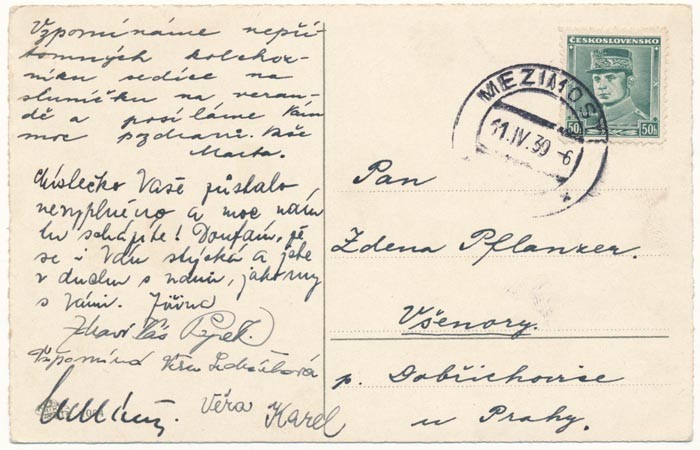 Vzpomínáme nepří
tomných kolchoz-
níku sedíce na
sluníčku na veran-
dě a posíláme Vám
moc pozdravů. Vaše
Marta.
Místečko Vaše zůstalo
nevyplněno a moc nám
tu scházíte! Doufám, že
se i Vám stýská a jste
v duchu s námi, jako my
s Vámi. Jiřina
Zdraví Vás
Vzpomíná Věra
Věra Karel
ČESKOSLOVENSKO
50h 50h
MEZIMOST
11.IV.39-6
Pan
Zdena Pflanzer.
Všenory.
p. Dobřichovice
u Prahy.